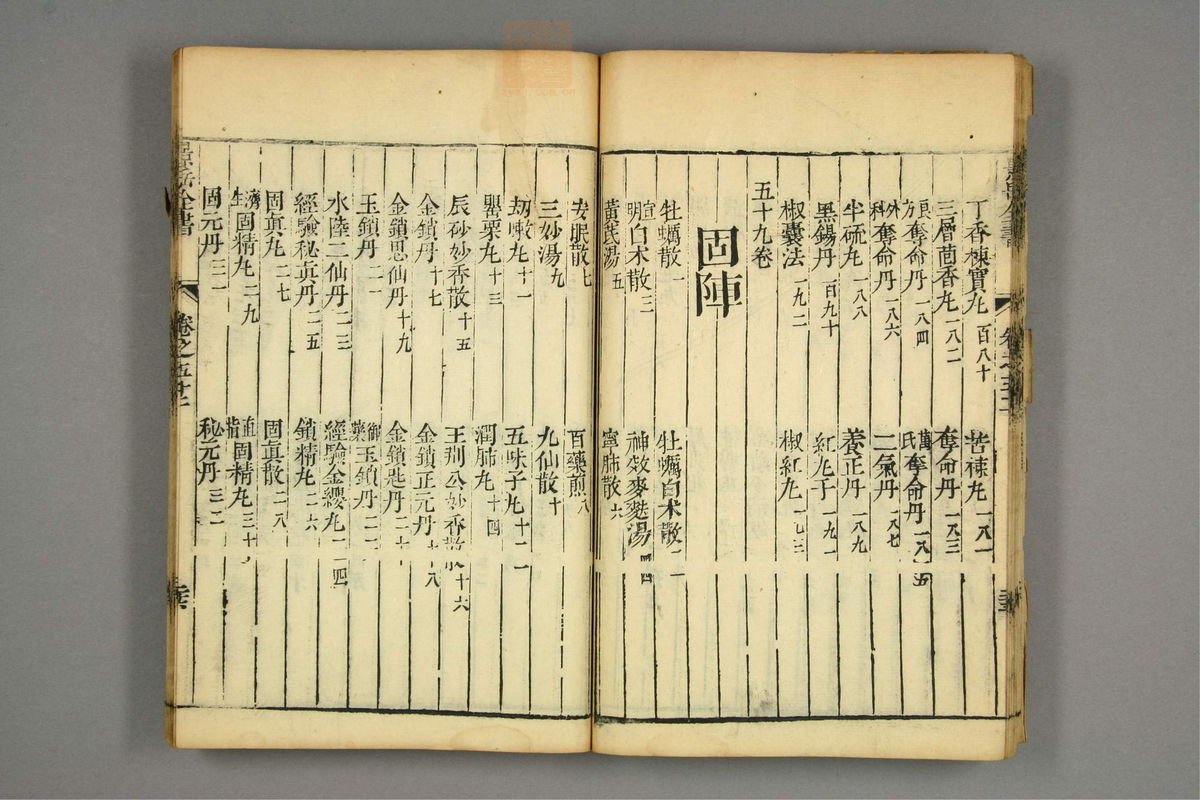 丁香楝實丸 百八十 苦楝丸 一八一
三層茴香丸 一八二 奪命丹 一八三
良方奪命丹 一八四 萬氏奪命丹 一八五
外科奪命丹 一八六 二氣丹 一八七
半硫丸 一八八 養正丹 一八九
黑錫丹 百九十 紅丸子 一九一
椒囊法 一九二 椒紅丸 一九三
五十九卷
固陣
牡蠣散 一 牡蠣白术散 二
宣明白术散 三 神效麥麩湯 四
黃芪湯 五 寧肺散 六
安眠散 七 百藥煎 八
三妙湯 九 九仙散 十
劫嗽丸 十一 五味子丸 十二
罌粟丸 十三 潤肺丸 十四
辰砂妙香散 十五 王荊公妙香散 十六
金鎖丹 十七 金鎖正元丹 十八
金鎖思仙丹 十九 金鎖匙丹 二十
玉鎖丹 二一 御藥玉鎖丹 二二
水陸二仙丹 二三 經驗金櫻丸 二四
經驗秘眞丹 二五 鎖精丸 二六
固眞丸 二七 固眞散 二八
濟生固精丸 二九 直指固精丸 三十
固元丹 三一 秘元丹 三二
景岳全書 卷之五十二